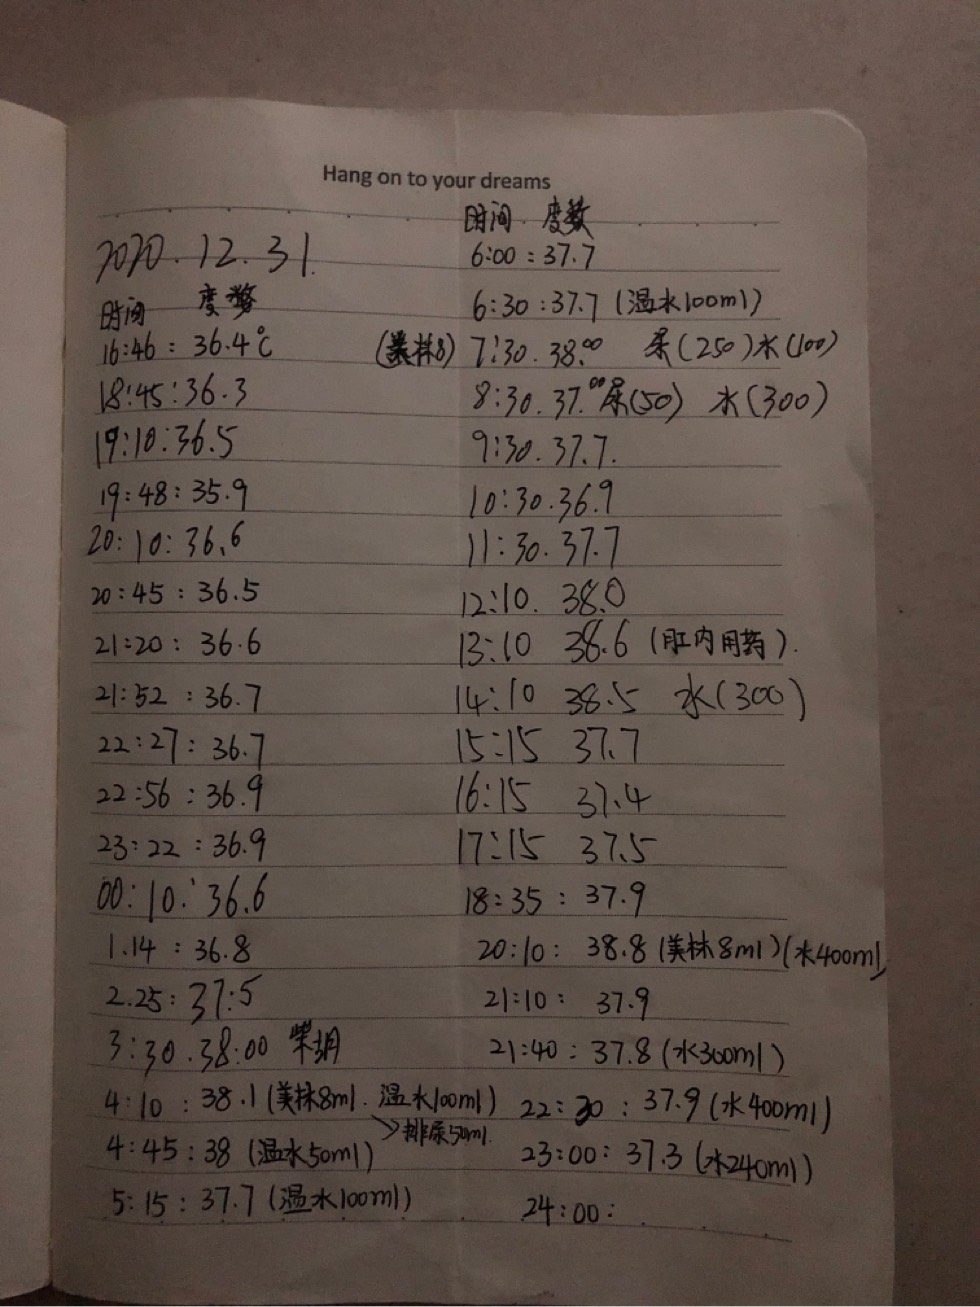 Hang on to your dreams
2020.12.31.
时间 度数
16:46 : 36.4℃
18:45 : 36.3
19:10 : 36.5
19:48 : 35.9
20:10 : 36.6
20:45 : 36.5
21:20 : 36.6
21:52 : 36.7
22:27 : 36.7
22:56 : 36.9
23:22 : 36.9
00:10 : 36.6
1.14 : 36.8
2.25 : 37.5
3:30.38:00 柴胡
4:10 : 38.1 (美林8ml. 温水100ml)
>排尿50ml.
4:45 : 38 (温水50ml)
5:15 : 37.7 (温水100ml)
时间 度数
6:00 : 37.7
6:30 : 37.7 (温水100ml)
(美林8) 7:30.38.00 尿(250) 水(100)
8:30.37.00 尿(50) 水(300)
9:30.37.7.
10:30.36.9
11:30.37.7
12:10. 38.0
13:10 38.6 (肛内用药).
14:10 38.5 水(300)
15:15 37.7
16:15 37.4
17:15 37.5
18:35 : 37.9
20:10 : 38.8 (美林8ml)(水400ml)
21:10 : 37.9
21:40 : 37.8 (水300ml)
22:30 : 37.9 (水400ml)
23:00 : 37.3 (水240ml)
24:00 :